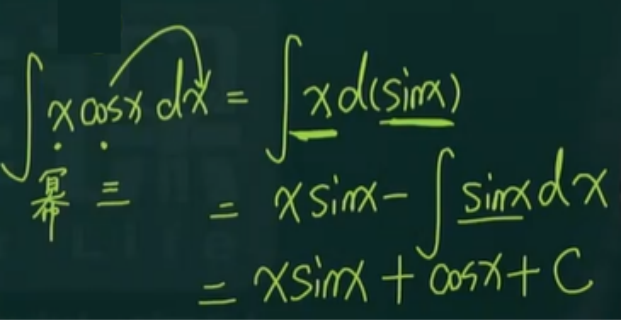 ∫ x cosx dx = ∫ x d(sinx)
幂 三
= x sinx - ∫ sinx dx
= x sinx + cosx + C